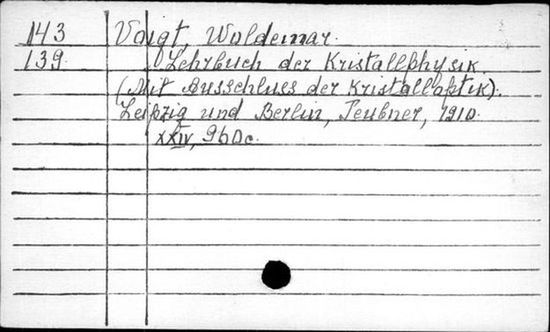 143 Voigt, Woldemar.
139 Lehrbuch der Kristallphysik.
(Mit Ausschluss der Kristalloptik).
Leipzig und Berlin, Teubner, 1910.
XXIV, 960 c.